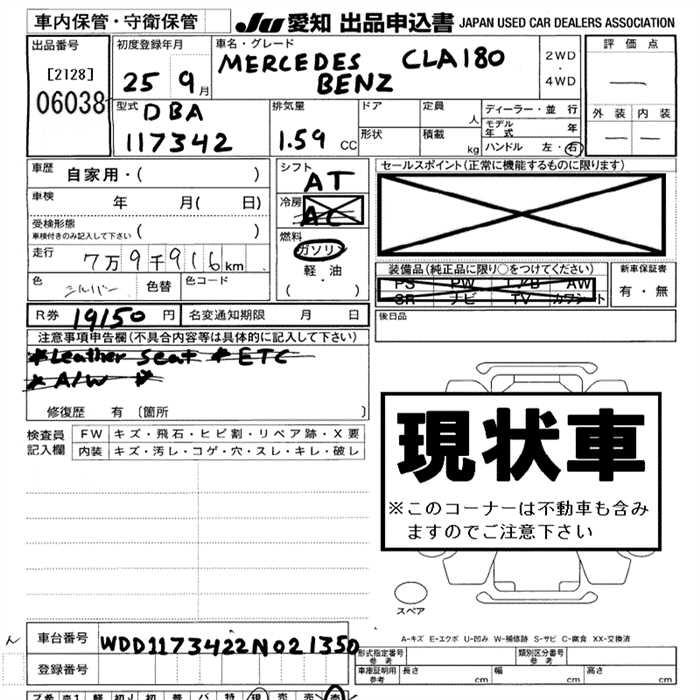 車内保管・守衛保管
JU 愛知 出品申込書 JAPAN USED CAR DEALERS ASSOCIATION
出品番号 初度登録年月 車名・グレード 2WD ・ 4WD 評価点
[2128] 25 9月 MERCEDES BENZ CLA180
06038 外装 内装
型式 排気量 ドア 定員 人 ディーラー・並行
DBA モデル年式 年
117342 1.59 CC 形状 積載 kg ハンドル 左・右
車歴 自家用・( ) シフト AT セールスポイント(正常に機能するものに限ります)
車検 年 月( 日) 冷房 AC
受検形態 ( )
車検付きのみ記入して下さい
燃料 ガソリン 軽油 ( ・ )
走行 7万9千916km
装備品(純正品に限り○をつけてください) 新車保証書
PS PW エアB AW 有・無
SR ナビ TV カワシート
色 シルバー 色替 色コード
後日品
R券 19150円 名変通知期限 月 日
注意事項申告欄(不具合内容等は具体的に記入して下さい)
*Leather Seat *ETC
*A/W *
修復歴 有 [箇所 ]
現状車
※このコーナーは不動車も含み
ますのでご注意下さい
検査員記入欄 FW キズ・飛石・ヒビ割・リペア跡・X要
内装 キズ・汚レ・コゲ・穴・スレ・キレ・破レ
スペア
A-キズ E-エクボ U-凹み W-補修跡 S-サビ C-腐食 XX-交換済
車台番号 WDD1173422N021350
登録番号
形式指定番号 参考 類別区分番号 参考
車庫証明用 参考 長さ cm 幅 cm 高さ cm